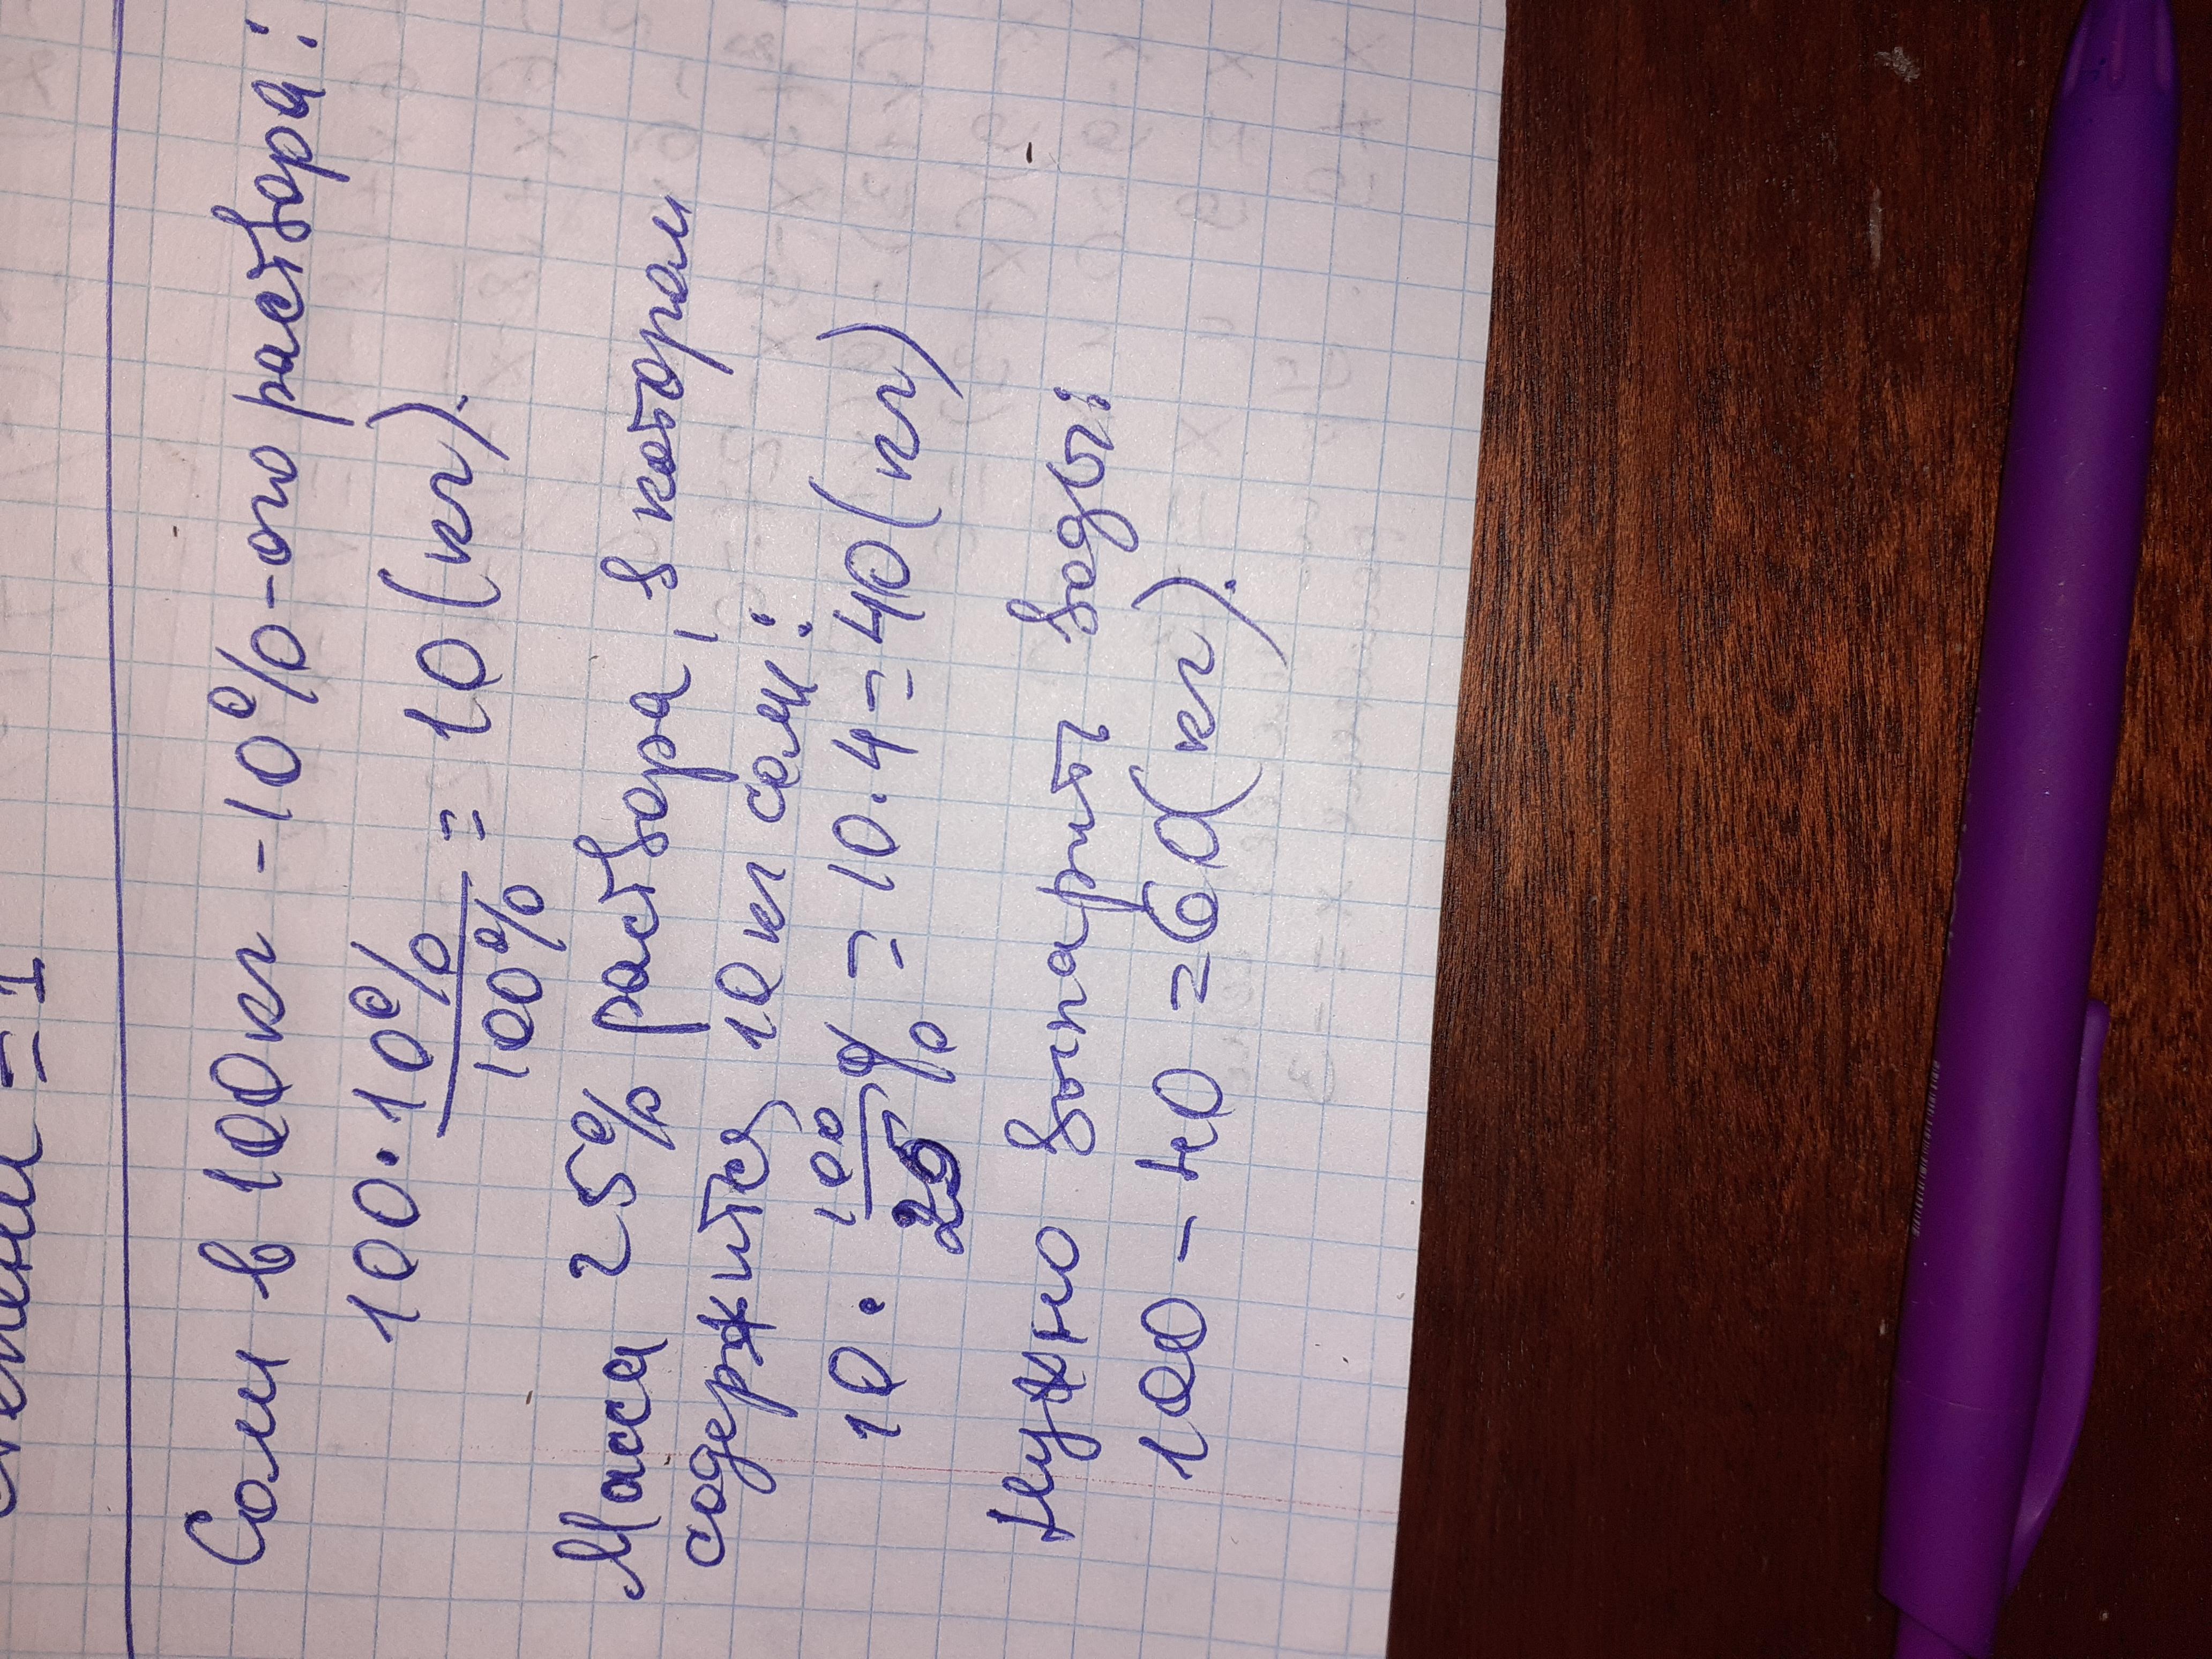 = 1
Соли в 100кг -10%-ого раствора:
100·10% / 100% = 10(кг).
Масса 25% раствора, в котором
содержится 10кг соли:
10·100/25% = 10·4=40(кг)
Нужно выпарить воды:
100-40=60(кг).